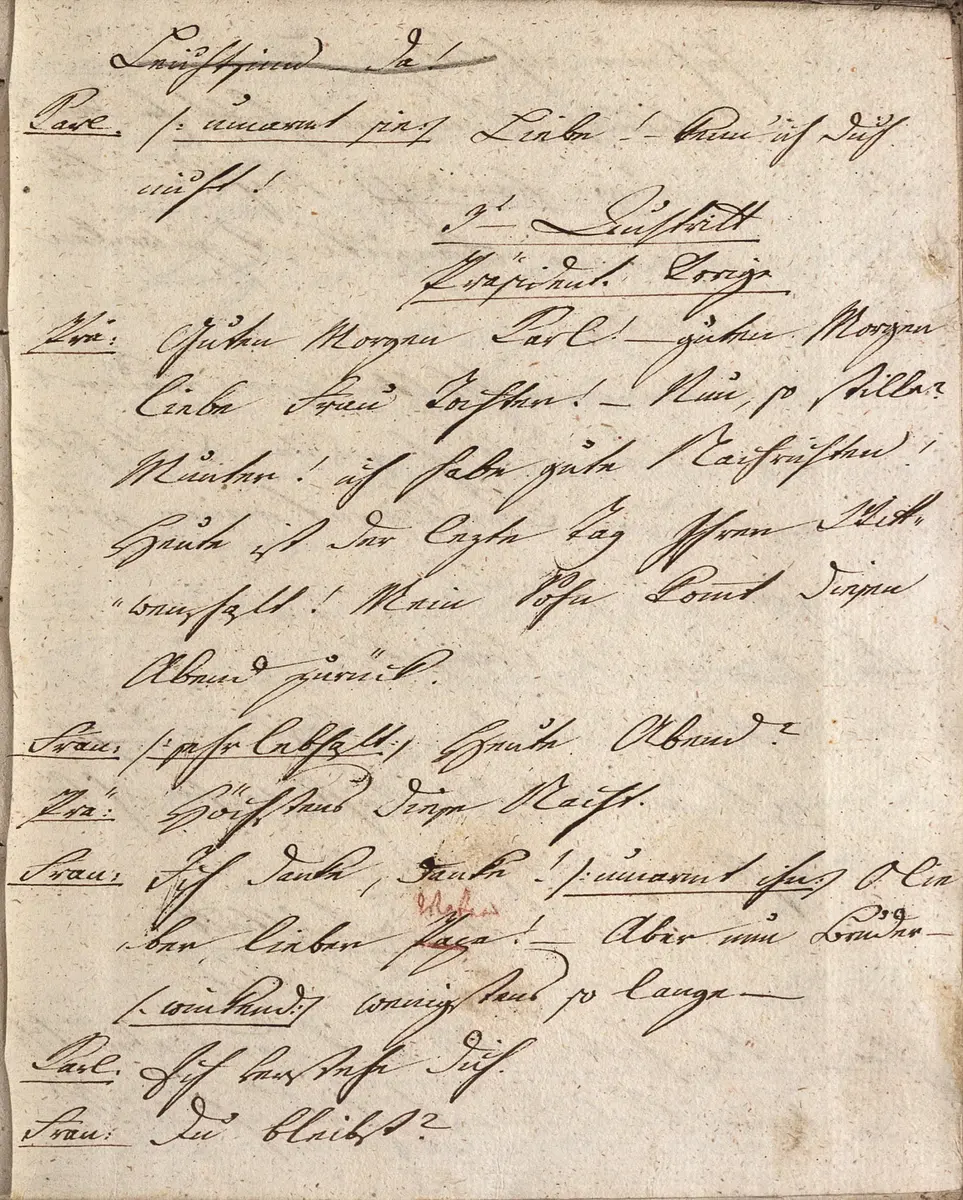 Leichtsinn da!
Carl. /: umarmt sie :/ Liebe! – kenn' ich Dich
nicht!
3t Auftritt
Präsident. Vorige
Prä: Guten Morgen Carl! – guten Morgen
liebe Frau Tochter! – Nun, so stille?
Munter! ich habe gute Nachrichten!
Heute ist der lezte Tag Ihrer Witt-
wenschaft! Mein Sohn kom̅t diesen
Abend zurück.
Fran: /: sehr lebhaft :/ Heute Abend?
Prä: Höchstens diese Nacht.
Fran: Ich danke, danke! /: umarmt ihn :/ O lie
ber lieber Papa! – Aber nun Bruder –
Vater
/: winkend :/ wenigstens so lange –
Carl. Ich verstehe Dich.
Fran: Du bleibst?